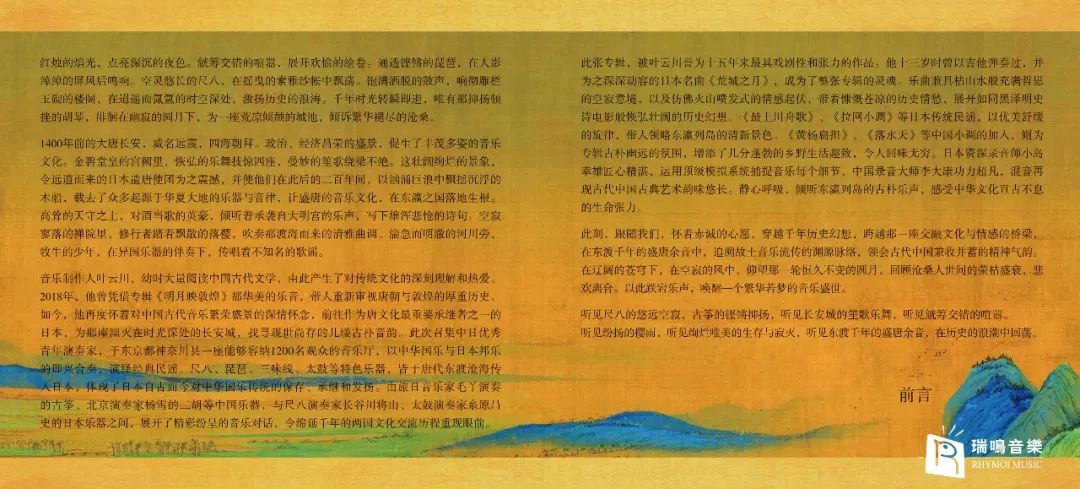 红烛的焰光，点亮深沉的夜色。觥筹交错的喧嚣，展开欢愉的绘卷：通透铿锵的琵琶，在人影
绰绰的屏风后鸣响。空灵悠长的尺八，在摇曳的素雅纱帐中飘荡。饱满洒脱的鼓声，响彻雕栏
玉砌的楼阁，在迢遥而氤氲的时空深处，激扬历史的浪涛。千年时光转瞬即逝，唯有那抑扬顿
挫的胡琴，徘徊在幽寂的圆月下，为一座荒凉倾颓的城池，倾诉繁华褪尽的沧桑。
1400年前的大唐长安，威名远震，四海朝拜。政治、经济昌荣的盛景，促生了丰茂多姿的音乐
文化。金碧堂皇的宫阙里，恢弘的乐舞技惊四座，曼妙的笙歌绕梁不绝。这壮阔绚烂的景象，
令远道而来的日本遣唐使团为之震撼，并使他们在此后的二百年间，以汹涌巨浪中飘摇沉浮的
木船，载去了众多起源于华夏大地的乐器与音律，让盛唐的音乐文化，在东瀛之国落地生根。
高耸的天守之上，对酒当歌的英豪，倾听着承袭自大明宫的乐声，写下雄浑悲怆的诗句。空寂
寥落的禅院里，修行者踏着飘散的落樱，吹奏那渡海而来的清雅曲调。湍急而明澈的河川旁，
牧牛的少年，在异国乐器的伴奏下，传唱着不知名的歌谣。
音乐制作人叶云川，幼时大量阅读中国古代文学，由此产生了对传统文化的深刻理解和热爱。
2018年，他曾凭借专辑《明月映敦煌》那华美的乐音，带人重新审视唐朝与敦煌的厚重历史。
如今，他再度怀着对中国古代音乐繁荣盛景的深情怀念，前往作为唐文化最重要承继者之一的
日本，为那座湮灭在时光深处的长安城，找寻现世尚存的几缕古朴音韵。此次召集中日优秀
青年演奏家，于东京都神奈川县一座能够容纳1200名观众的音乐厅，以中华国乐与日本邦乐
的即兴合奏，演绎经典民谣。尺八、琵琶、三味线、太鼓等特色乐器，皆于唐代东渡沧海传
入日本，体现了日本自古而今对中华国乐传统的保存、承继和发扬。由旅日音乐家毛丫演奏
的古筝、北京演奏家杨雪的二胡等中国乐器，与尺八演奏家长谷川将山、太鼓演奏家糸原昌
史的日本乐器之间，展开了精彩纷呈的音乐对话，令绵延千年的两国文化交流历程重现眼前。
此张专辑，被叶云川誉为十五年来最具戏剧性和张力的作品。他十三岁时曾以吉他弹奏过，并
为之深深动容的日本名曲《荒城之月》，成为了整张专辑的灵魂。乐曲兼具枯山水般充满哲思
的空寂意境，以及仿佛火山喷发式的情感起伏，带着慷慨苍凉的历史情愁，展开如同黑泽明史
诗电影般恢弘壮阔的历史幻想。《最上川舟歌》、《拉网小调》等日本传统民谣，以优美舒缓
的旋律，带人领略东瀛列岛的清新景色。《黄杨扁担》、《落水天》等中国小调的加入，则为
专辑古朴幽远的氛围，增添了几分蓬勃的乡野生活趣致，令人回味无穷。日本资深录音师小岛
幸雄匠心精湛，运用顶级模拟系统捕捉音乐每个细节，中国录音大师李大康功力超凡，混音再
现古代中国古典艺术的味悠长。静心呼吸，倾听东瀛列岛的古朴乐声，感受中华文化亘古不息
的生命张力。
此刻，跟随我们，怀着赤诚的心愿，穿越千年历史幻想，跨越那一座交融文化与情感的桥梁，
在东渡千年的盛唐余音中，追溯故土音乐流传的渊源脉络，领会古代中国兼收并蓄的精神气韵。
在辽阔的苍穹下，在空寂的风中，仰望那一轮恒久不变的圆月，回顾沧桑人世间的荣枯盛衰、悲
欢离合。以此跌宕乐声，唤醒一个繁华若梦的音乐盛世。
听见尺八的悠远空寂，古筝的铿锵抑扬，听见长安城的笙歌乐舞、听见觥筹交错的喧嚣。
听见纷扬的樱雨，听见绚烂唯美的生存与寂灭，听见东渡千年的盛唐余音，在历史的浪潮中回荡。
前言
瑞鳴音樂
RHYMOI MUSIC